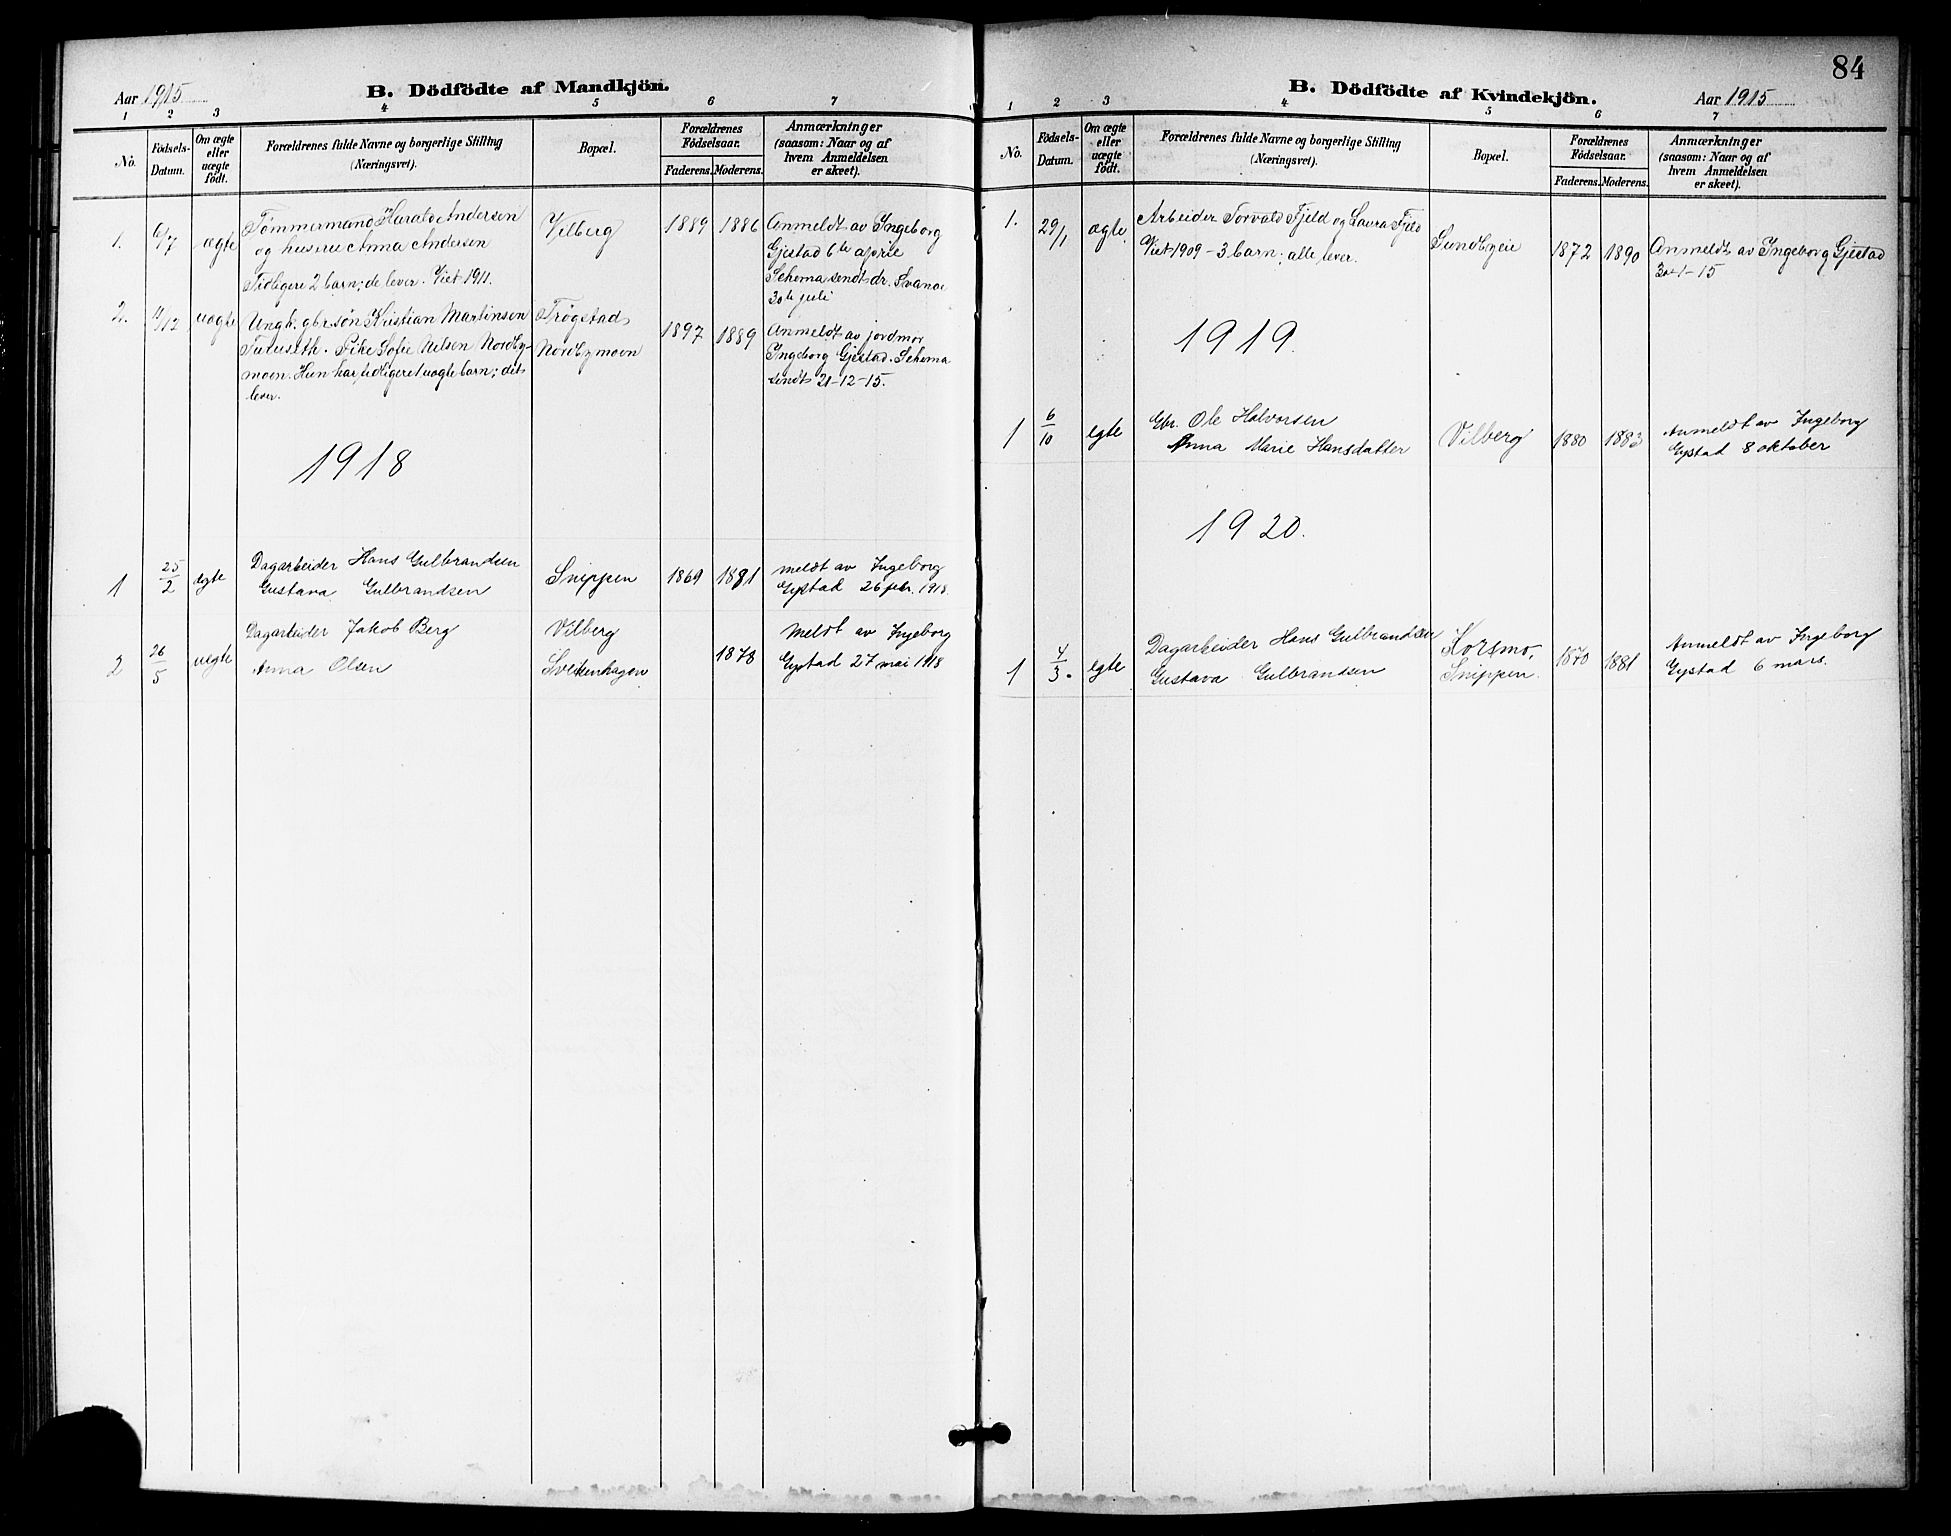 Aar 1915
B. Dödfödte af Mandkjön.
1 2 3 4 5 6 7
No. Födsels-Datum. Om ægte eller uægte födt. Forældrenes fulde Navne og borgerlige Stilling (Næringsvei). Bopæl. Forældrenes Födselsaar. Faderens. Moderens. Anmærkninger (saasom: Naar og af hvem Anmeldelsen er skeet).
1. 6/7 ægte Tømmermand Harald Andersen Vilberg 1889 1886 Anmeldt av Ingeborg
og hustru Anna Andersen Gjestad 6te
Tidligere 2 barn; de lever. Viet 1911. Schema sendt dr.
30te juli
2. 11/12 uægte Ungk. gbr.søn Kristian Martinsen Trøgstad 1897 1889 Anmeldt av jordmor
Furuseth. Pike Sofie Nilsen Nordby- Nordbymoen Ingeborg Gjestad. Schema
moen. Hun har tidligere 1 uægte barn; det sendt 21-12-15.
lever.
1918
1 25/2 egte Dagarbeider Hans Gulbrandsen Snippen 1869 1881 meldt av Ingeborg
Gustava Gulbrandsen Gystad 26 febr. 1918.
2 26/5 uegte Dagarbeider Jakob Berg Vilberg 1878 Meldt av Ingeborg
Anna Olsen Gystad 27 mai 1918
84
B. Dödfödte af Kvindekjön.
Aar 1915
1 2 3 4 5 6 7
No. Födsels-Datum. Om ægte eller uægte födt. Forældrenes fulde Navne og borgerlige Stilling (Næringsvei). Bopæl. Forældrenes Födselsaar. Faderens. Moderens. Anmærkninger (saasom: Naar og af hvem Anmeldelsen er skeet).
1. 29/1 ægte Arbeider Torvald Fjeld og Laura Fjeld Sundbyeie 1872 1890 Anmeldt av Ingeborg Gjestad
Viet 1909 - 3 barn; alle lever. 30-1-15
1919.
1 6/10 egte Gbr. Ole Halvorsen Vilberg 1880 1883 Anmeldt av Ingeborg
Anna Marie Hansdatter Gystad 8 oktober
1920.
1 4/3. egte Dagarbeider Hans Gulbrandsen Korsmo, 1870 1881 Anmeldt av Ingeborg
Gustava Gulbrandsen Snippen. Gystad 6 mars.